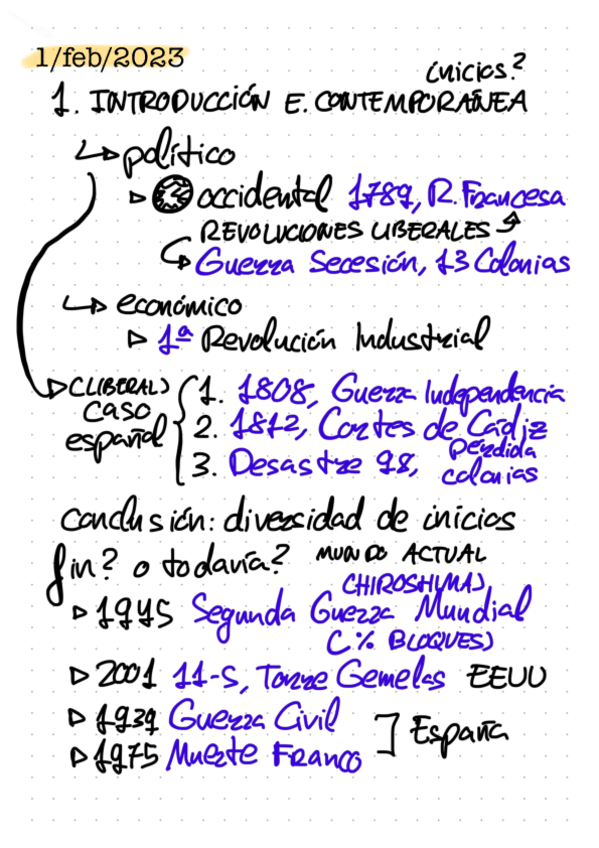 1/feb/2023
inicios?
1. INTRODUCCIÓN E. CONTEMPORÁNEA
político
occidental 1789, R. Francesa
REVOLUCIONES LIBERALES
Guerra Secesión, 13 Colonias
económico
1ª Revolución Industrial
(LIBERAL)
caso
español
1. 1808, Guerra Independencia
2. 1812, Cortes de Cádiz
3. Desastre 98, pérdida
colonias
conclusión: diversidad de inicios
fin? o todavía? MUNDO ACTUAL
(HIROSHIMA)
1945 Segunda Guerra Mundial
(% BLOQUES)
2001 11-S, Torre Gemelas EEUU
1939 Guerra Civil
España
1975 Muerte Franco